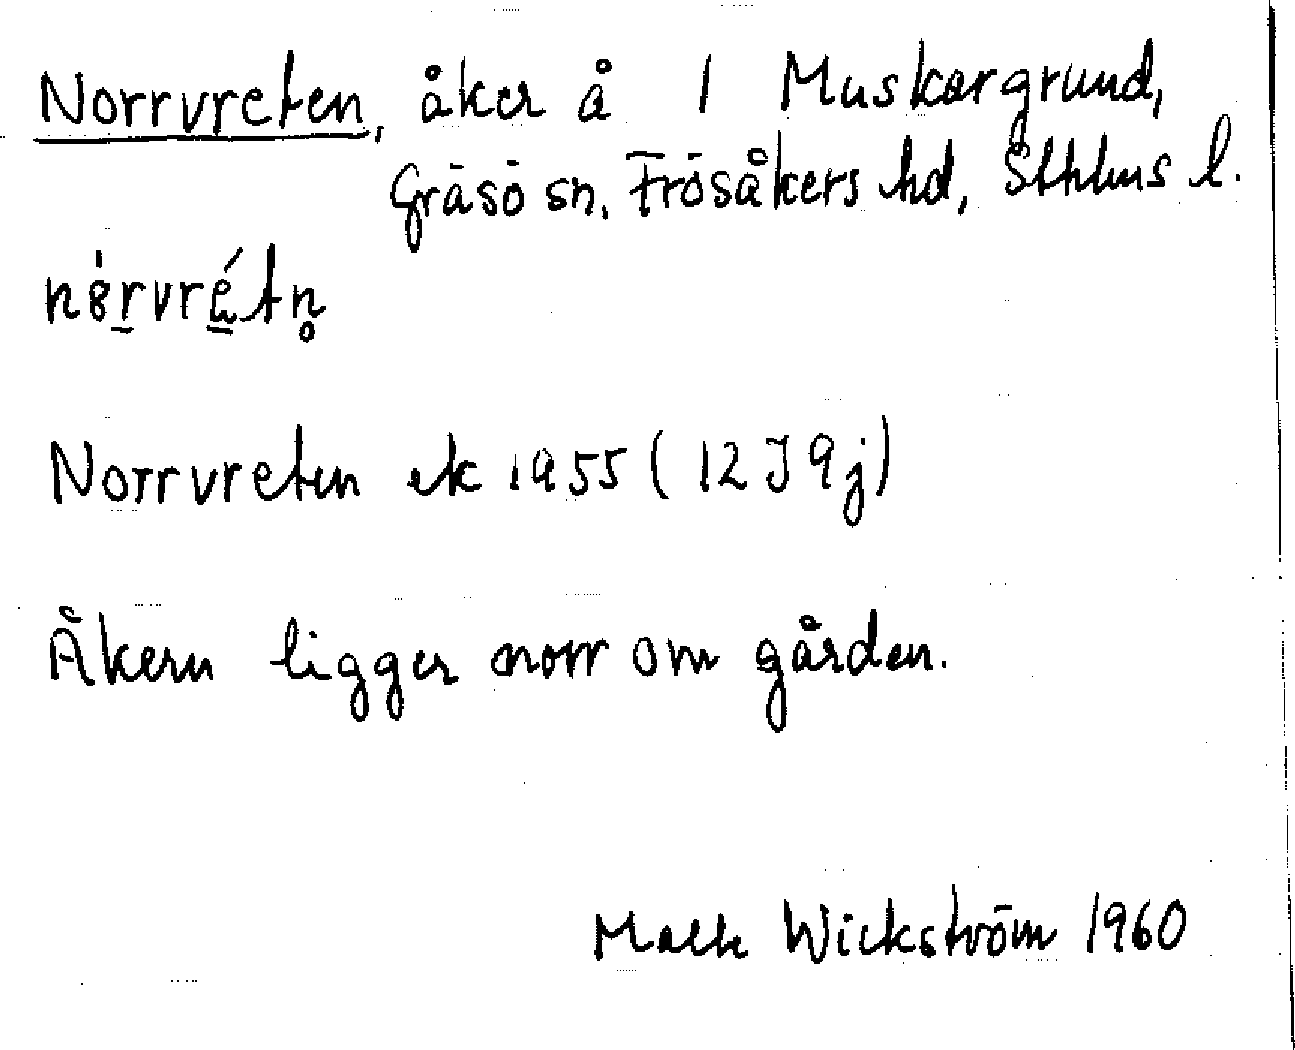 Norrvreten, åker å 1 Muskargrund,
Gräsö sn. Frösåkers hd, Sthlms l.
Norrvreten ek 1955 (12 I 9 j)
Åkern ligger norr om gården.
Wickström 1960